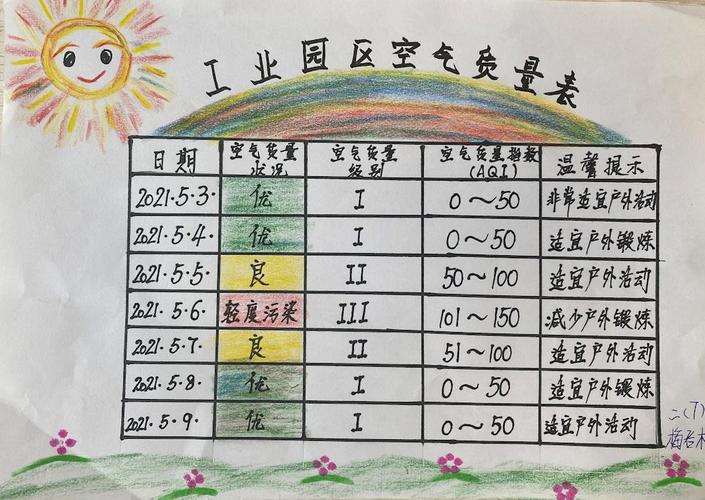 工业园区空气质量表
日期 空气质量状况 空气质量级别 空气质量指数(AQI) 温馨提示
2021.5.3. 优 I 0～50 非常适宜户外活动
2021.5.4. 优 I 0～50 适宜户外锻炼
2021.5.5. 良 II 50～100 适宜户外活动
2021.5.6. 轻度污染 III 101～150 减少户外锻炼
2021.5.7. 良 II 51～100 适宜户外活动
2021.5.8. 优 I 0～50 适宜户外锻炼
2021.5.9. 优 I 0～50 适宜户外活动
二(7)